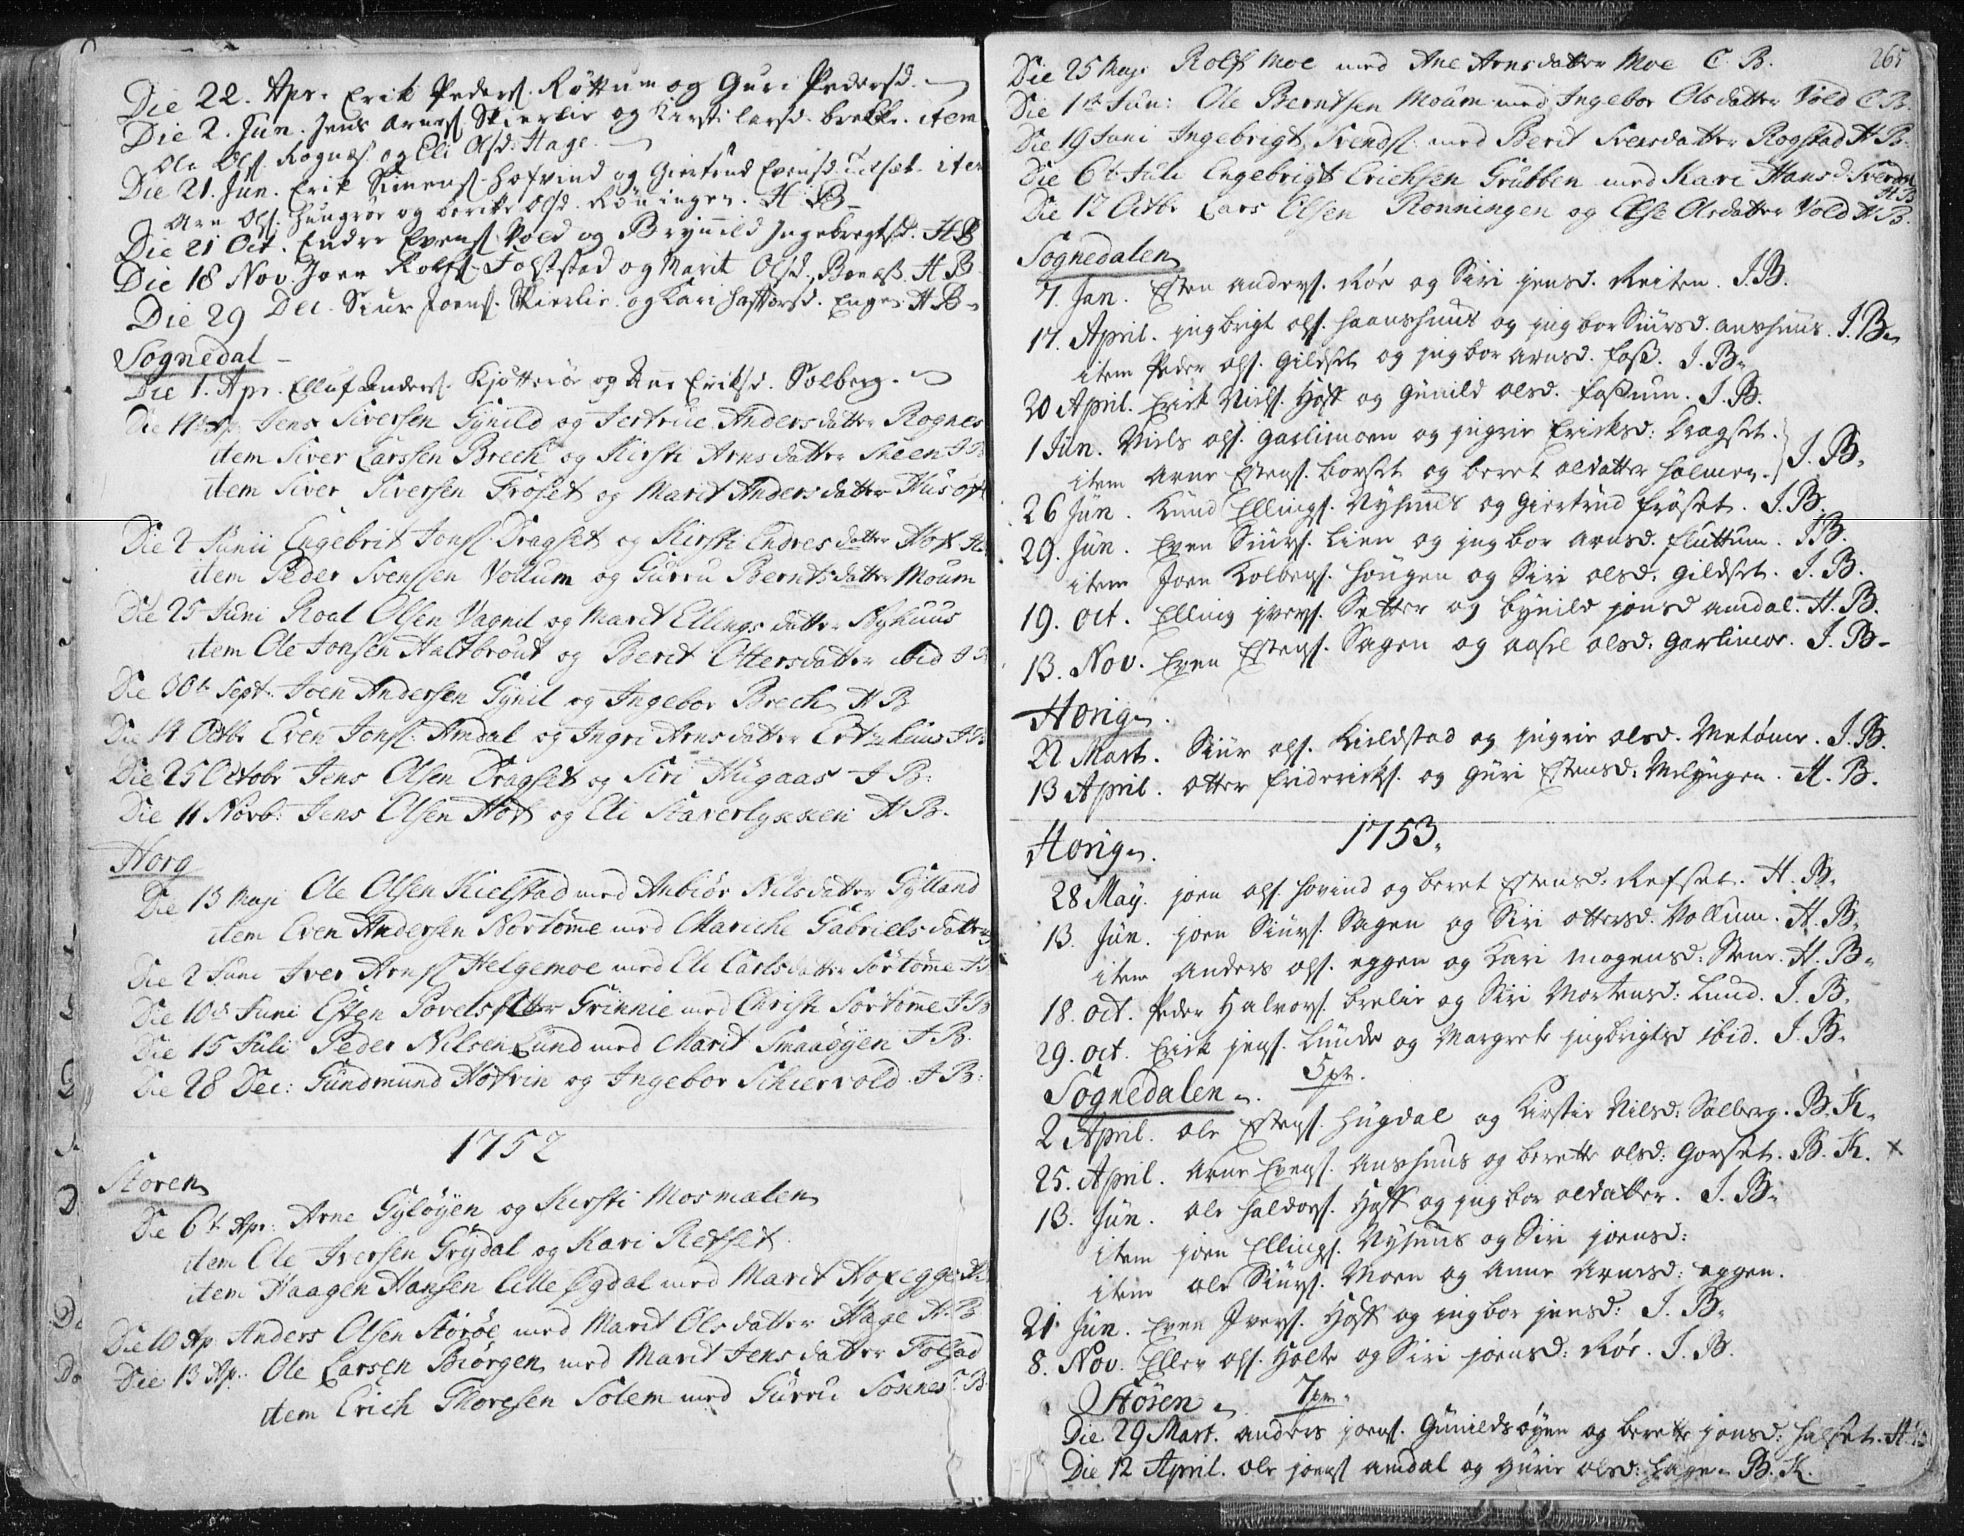 Die 22. Apr. Erik Peders. Røttum og Guri Pedersd.
Die 2. Jun. Jens Arnes. Skierlie og Kirsti larsd. brekke. item
Ole Ols. Rognæs. og Eli Olsd. Hage.
Die 21. Jun. Erik Simens. Hofvind og Giertrud Evensd. item
Arn Ols. Hungrør og berite Olsd. Røningen. H. B.
Die 21 Oct. Endre Evens. Vold og Brynild Ingebregtsd. H B
Die 18 Nov. Joen Rolfs. Folstad og Marit Olsd. H B
Die 29 Dec. Siur Joens. Skierlie og Kari Enge. H B
Sognedal
Die 1. Apr. Elluf Anders. Kjøtterør og Ane Eriksd. Solberg.
Die Apr. Jens Siversen Gynild og Jertrue Anders datter Rognes
item Siver Larssen Brech og Kirsti Arns datter Skeen J B
item Siver Siversen Frøset og Marit Anders datter
Die 2 Junii Engebrit Jons. Dragset og Kirsti Endres datter Hof
item Peder Svenssen Vollum og Gurru Bernts datter Moum
Die 25 Juni Roal Olsen Vagnil og Marit Ellings datter Nyhuus
item Ole Jonsen Haltbrout og Berit Ottersdatter ibid J B
Die 30t Sept. Joen Andersen Gynil og Ingebor Brech H B
Die 14 Octbr Even Jons. Amdal og Ingri Arns datter J B
Die 25 Octobr Jens Olsen Dragset og Siri Hugaas J B.
Die 11 Novb: Jens Olsen Hof og Eli Staverløkken H B.
Horg
Die 13 Maji Ole Olsen Kielstad med Anbiør Nils datter Gylland
item Even Andersen Nortøme med Mariche Gabriels datter
Die 2 Juni Iver Arns. Helgemoe med Eli Carls datter Sørtøme J B
Die 10de Juni Esten Povels Grinnie med Christi Sørtøme J B
Die 15 Juli Peder Nilsen Lund med Marit Smaaøyen J B.
Die 28 Dec: Gundmund Hofvin og Ingebor Schiervold J B:
1752
Støren
Die 6t Apr: Arne Gyløyen og Kirsti Mosmalen
item Ole Iversen Grydal og Kari Refset.
item Haagen Hansen Lille Øgdal med Marit
Die 10 Ap Anders Olsen Størøe med Marit Ols datter Hage H. B
Die 13 Ap. Ole Larsen Biørgen med Marit Jens datter Folstad
item Erich Thoresen Solem med Gurru
265
Die 25 Maji Rolf Moe med Ane Arns datter Moe C. B.
Die 1te Jun: Ole Berntsen Moum med Ingebor Ols datter Vold C B.
Die 19 Juni Ingebrigt Svends. med Berit Sversdatter Rogstad H B.
Die 6t Juli Engebrigt Erichsen Grubben med Kari Hans D. H B
Die 12 Octbr Lars Olsen Rønningen og Else Olsdatter Vold H B.
Sognedalen
7. Jan. Esten anders. Røe og Siri jensd. Reiten. J. B.
17. April. jngbrigt ols. haanshuus og jngbor Siursd. anshuus. J. B.
item Peder ols. Gildset og jngbor arnsd. foss. J. B.
20 April. Erick Niels. Hoff og Gunild olsd. fossum. J. B.
1 Jun. Niels ols. garlimoen og jngrie Ericksd: Dragset.
item Arne Estens. borset og beret oldatter holmen. } J. B.
26 Jun. Knud Ellings. Nyhuus og Giertrud frøset. J. B.
29. Jun. Even Siurs. Lien og jngbor arnsd. fluttum. J B.
item Joen Kolbens. Høugen og Siri olsd. Gildset. J. B.
19. Oct. Elling jvers. Setter og bynild jonsd amdal. H. B.
13. Nov. Even Estens. Sagen og aasil olsd: Garlimoe. J. B.
Horign.
22 Mart. Siur ols. Kieldstad og jngrie olsd. Metømr. J. B.
13 April. otter fridericks. og Guri Estensd: Melhugen. H. B.
1753.
Horign.
28 May. joen ols hovind og beret Estensd: Refset. H. B.
13. Jun. joen Siurs. Sagen og Siri ottersd. Vollum. H. B.
item Anders ols. eggen og Kari mogensd: Stenr. H. B.
18. oct. Peder Halvors. brelie og Siri Mortensd: Lund. J. B.
29. oct. Erick jens. Lunde og Margrete jngbrigtsd ibid. J. B.
5 pr.
Sognedalen.
2 April. ole Estens. Hugdal og Kirstie Nilsd: Solberg. B. K.
25. April. Arne Evens. Anshuus og berette olsd: Gorset. B. K. x
13. Jun. ole haldors. Hoff og jngbor oldatter. J. B.
item joen Ellings. Nyhuus og Siri joensd:
item ole Siurs. Moen og Anne Arnesd: eggen.
21 Jun. Even Ivers. Hoff og jngbor jensd: J. B.
8. Nov. Ellev ols. Holte og Siri joensd: Røe. J. B.
7 pr.
Støren
Die 29 Mart. anders joens. Gunildsøyen og berette jonsd: halset. H. B
Die 12 April. ole joens amdal og gurie olsd: hage. B. K.